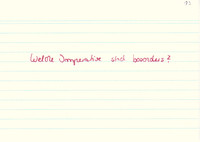 Welche Imperative sind besonders?